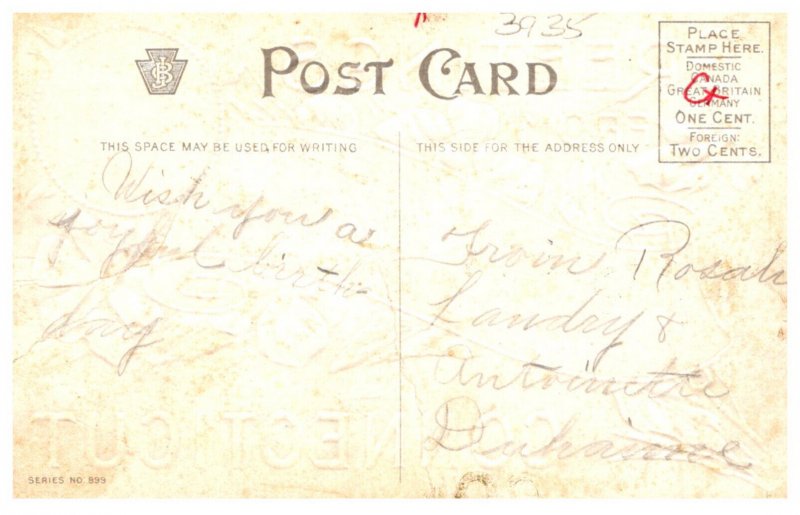 3935
POST CARD
PLACE
STAMP HERE.
DOMESTIC
CANADA
GREAT BRITAIN
GERMANY
ONE CENT.
FOREIGN:
TWO CENTS.
THIS SPACE MAY BE USED FOR WRITING
THIS SIDE FOR THE ADDRESS ONLY
Wish you a
joyful birth
day
From Rosah
Landry &
Antoinette
Duhaime
CONNECTICUT
SERIES NO. 899